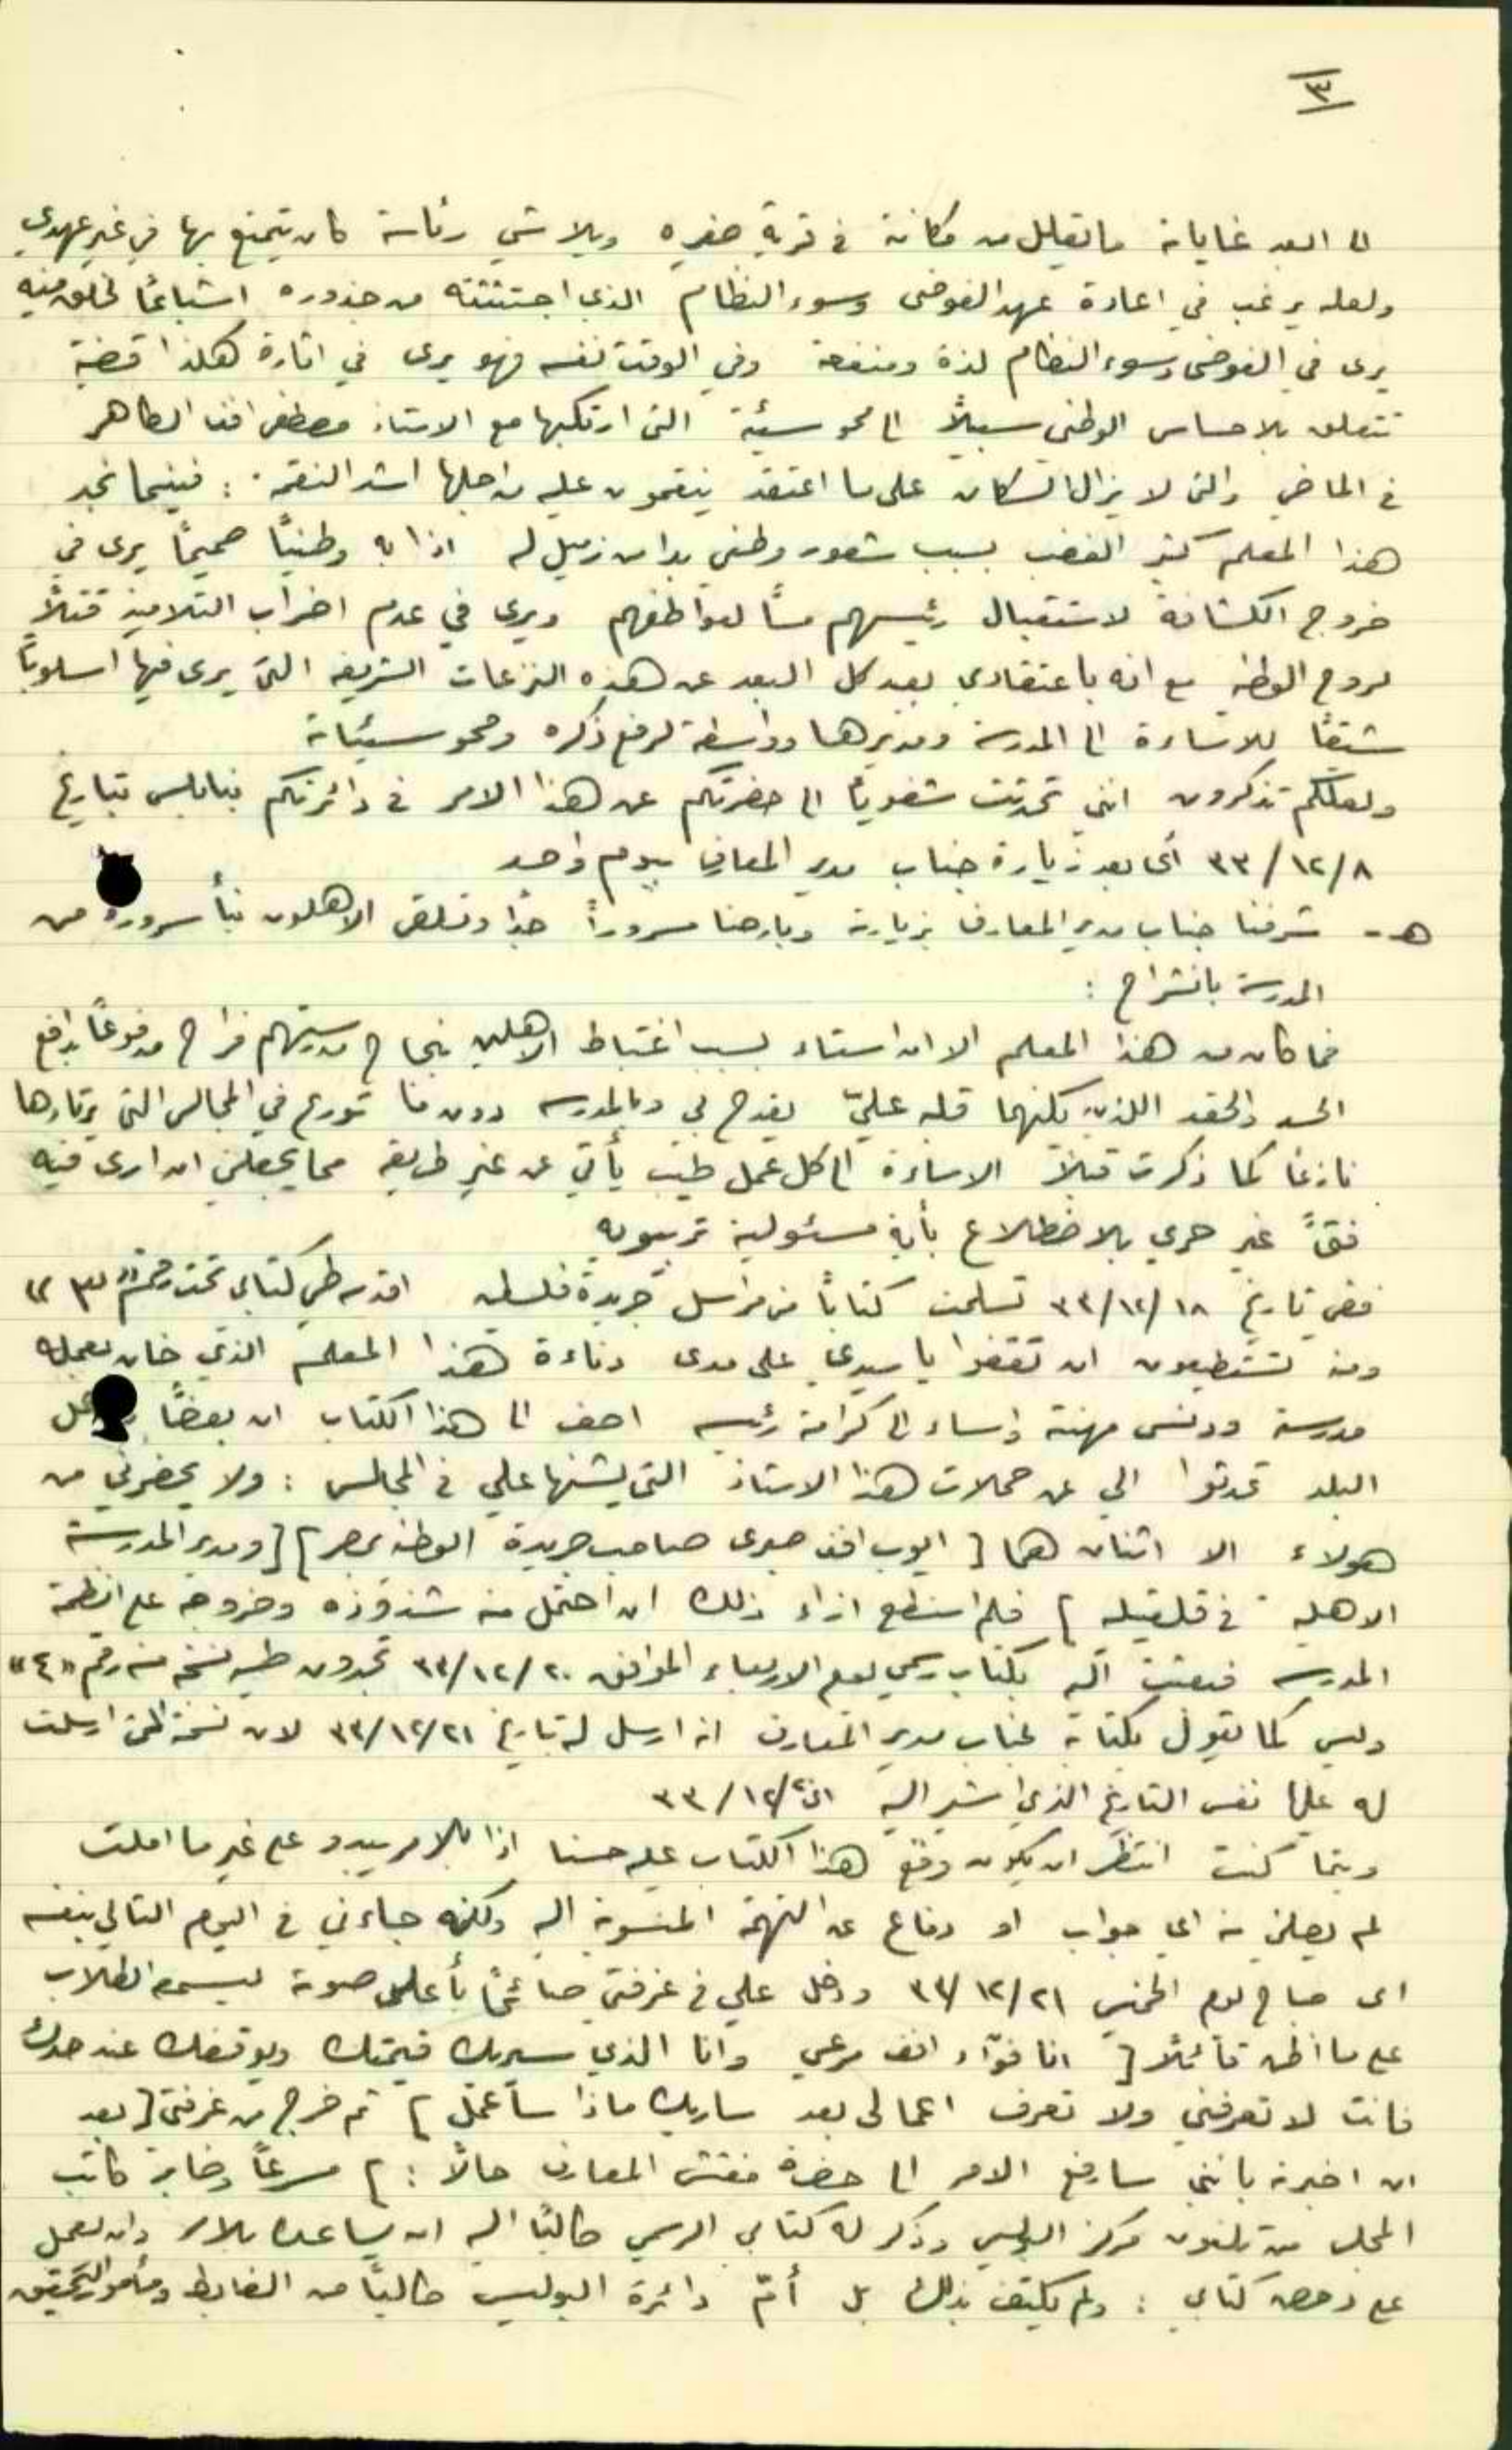 ٣
الى ابعد غاياته ما يقلل من مكانة في قرية صغيره ويلاشي رئاسة كان يتمتع بها في غير عهدي
ولعله يرغب في اعادة عهد الفوضى وسوء النظام الذي اجتثثته من جذوره اشباعًا لخلق فيه
يرى في الفوضى وسوء النظام لذة ومنفعة وفي الوقت نفسه فهو يرى في اثارة هكذا قضية
تتعلق بالاحساس الوطني سبيلاً الى محو سيئة التي ارتكبها مع الاستاذ مصطفى افندي الطاهر
في الماضي والتي لا يزال السكان على ما اعتقد ينقمون عليه من اجلها اشد النقمة : فبينما نجد
هذا المعلم كثير الغضب بسبب شعور وطني بدا من زميل له اذا به وطنيًا صميمًا يرى في
خروج الكشافة لاستقبال رئيسهم مسًا لعواطفهم ويرى في عدم اضراب التلاميذ قتلاً
لروح الوطنية مع انه باعتقادي بعيد كل البعد عن هذه النزعات الشريفه التي يرى فيها اسلوبًا
شيقًا للاساءة الى المدرسة ومديرها وواسطة لرفع ذكره ومحو سيئاته
ولعلكم تذكرون انني تحدثت شفويًا الى حضرتكم عن هذا الامر في دائرتكم بنابلس بتاريخ
٨/١٢/٣٣ أي بعد زيارة جناب مدير المعارف بيوم واحد
هـ - شرفنا جناب مدير المعارف بزيارته وبارحنا مسرورًا جدًا وتلقى الاهلون نبأ سروره من
المدرسة بانشراح :
فما كان من هذا المعلم الا ان استاء بسبب اغتباط الاهلين بنجاح مدرستهم فراح مدفوعًا بدافع
الحسد والحقد اللذين يكنهما قلبه عليّ يقدح بي وبالمدرسه دون ما تورع في المجالس التي يرتادها
نازعًا كما ذكرت قبلاً الاساءة الى كل عمل طيب يأتي عن غير طريقه مما يجعلني ان ارى فيه
فتىً غير حري بالاضطلاع بأية مسئولية تربويه
ففي تاريخ ١٨/١٢/٣٣ تسلمت كتابًا من مراسل جريدة فلسطين اقدمه طي كتابي تحت رقم "٣"
ومنه تستطيعون ان تقفوا يا سيدي على مدى دناءة هذا المعلم الذي خان بعمله
مدرسة ودنس مهنته واساء الى كرامة رئيسه اضف الى هذا الكتاب ان بعضًا
البلد تحدثوا الي عن حملات هذا الاستاذ التي يشنها علي في المجالس : ولا يحضرني من
هولاء الا اثنان هما [ ايوب افندي صبري صاحب جريدة الوطنية بمصر ] [ ومدير المدرسة
الاهلية في قلقيليه ] فلم استطع ازاء ذلك ان احتمل منه شذوذه وخروجه على انظمة
المدرسه فبعثت اليه بكتاب رسمي يوم الاربعاء الموافق ٢٠/١٢/٣٣ تجدون طيه نسخة منه رقم "٤"
وليس كما يقول بكتابه لجناب مدير المعارف انه ارسل له بتاريخ ٢١/١٢/٣٣ لان نسخة التي ارسلت
له عليها نفس التاريخ الذي اشير اليه اي ٢٠/١٢/٣٣
وبينما كنت انتظر ان يكون وقع هذا الكتاب عليه حسنا اذا بالامر يبدو على غير ما املت
لم يصلني منه اي جواب او دفاع عن التهمة المنسوبة اليه ولكنه جاءني في اليوم التالي بنفسه
اي صباح يوم الخميس ٢١/١٢/٣٣ ودخل علي في غرفتي صائحًا بأعلى صوته ليسمع الطلاب
على ما اظن قائلاً [ انا فؤاد افندي مرعي وانا الذي سيريك قيمتك ويوقفك عند حدك
فانت لا تعرفني ولا تعرف اعمالي بعد ساريك ماذا سأعمل ] ثم خرج من غرفتي [ بعد
ان اخبرته بانني سارفع الامر الى حضرة مفتش المعارف حالاً : ] مسرعًا وخابر كاتب
المجلس من تلفون مركز البوليس وذكر له كتابي الرسمي طالبًا اليه ان يساعده بالامر وان يعمل
على دحض كتابي : ولم يكتف بذلك بل أمّ دائرة البوليس طالبًا من الضابط ومأمور التحقيق